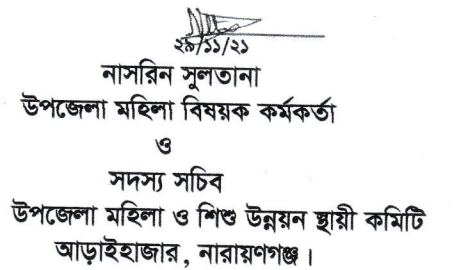 ২৯/১১/২১
নাসরিন সুলতানা
উপজেলা মহিলা বিষয়ক কর্মকর্তা
ও
সদস্য সচিব
উপজেলা মহিলা ও শিশু উন্নয়ন স্থায়ী কমিটি
আড়াইহাজার, নারায়ণগঞ্জ।